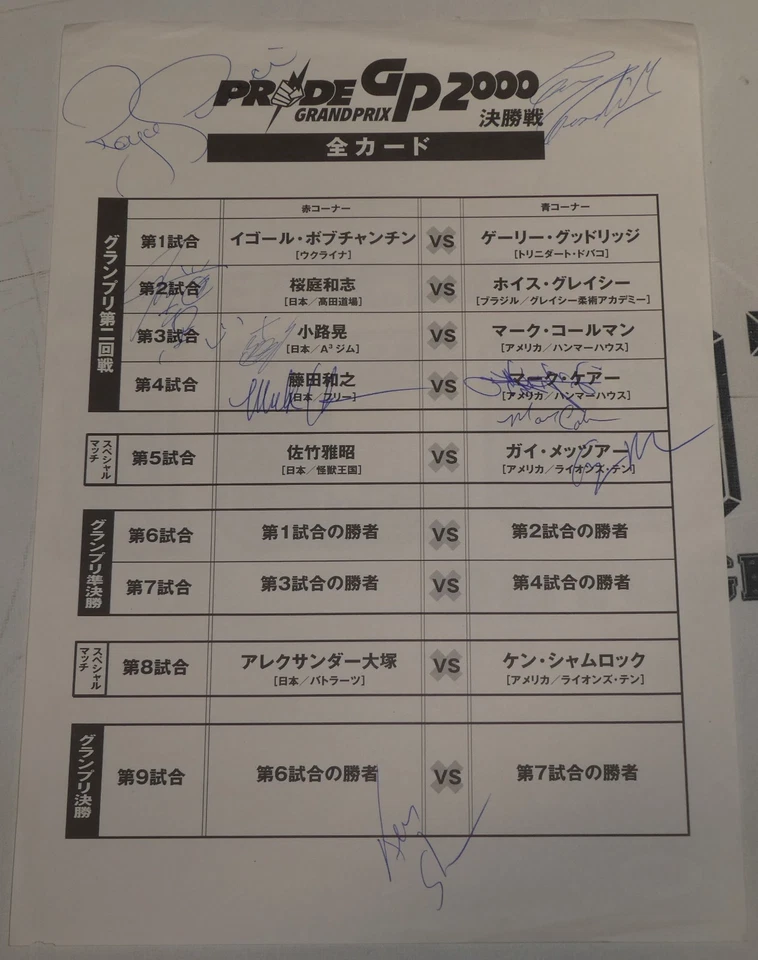 PRIDE GP 2000
GRANDPRIX 決勝戦
全カード
赤コーナー 青コーナー
グランプリ第二回戦
第1試合 イゴール・ボブチャンチン VS ゲーリー・グッドリッジ
[ウクライナ] [トリニダート・ドバコ]
第2試合 桜庭和志 VS ホイス・グレイシー
[日本/高田道場] [ブラジル/グレイシー柔術アカデミー]
第3試合 小路晃 VS マーク・コールマン
[日本/A³ジム] [アメリカ/ハンマーハウス]
第4試合 藤田和之 VS マーク・ケアー
[日本/フリー] [アメリカ/ハンマーハウス]
スペシャルマッチ
第5試合 佐竹雅昭 VS ガイ・メッツアー
[日本/怪獣王国] [アメリカ/ライオンズ・デン]
グランプリ準決勝
第6試合 第1試合の勝者 VS 第2試合の勝者
第7試合 第3試合の勝者 VS 第4試合の勝者
スペシャルマッチ
第8試合 アレクサンダー大塚 VS ケン・シャムロック
[日本/バトラーツ] [アメリカ/ライオンズ・デン]
グランプリ決勝
第9試合 第6試合の勝者 VS 第7試合の勝者